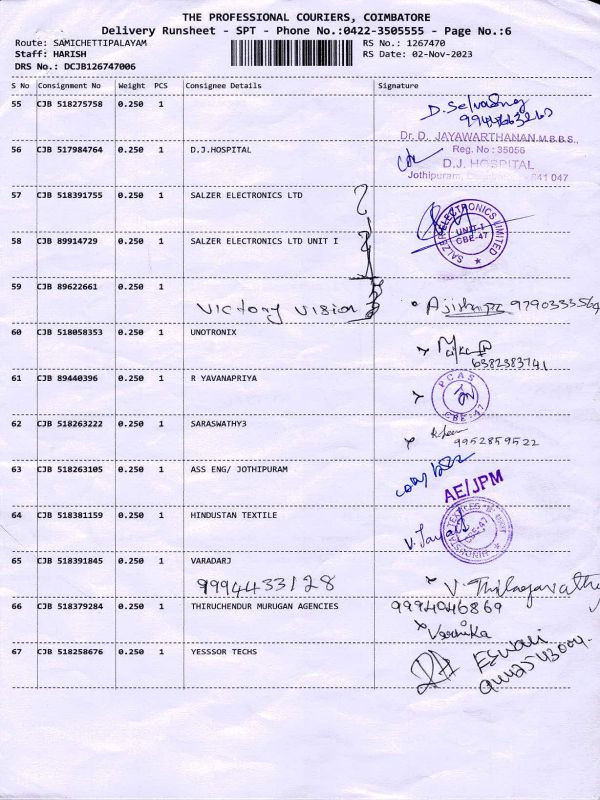 THE PROFESSIONAL COURIERS, COIMBATORE
Delivery Runsheet - SPT - Phone No.:0422-3505555 - Page No.:6
Route: SAMICHETTIPALAYAM RS No.: 1267470
Staff: HARISH RS Date: 02-Nov-2023
DRS No.: DCJB126747006
S No Consignment No Weight PCS Consignee Details Signature
55 CJB 518275758 0.250 1
Dr. D. JAYAWARTHANAN.M.B.B.S.,
Reg. No : 35056
56 CJB 517984764 0.250 1 D.J.HOSPITAL
D.J. HOSPITAL
Jothipuram, 641 047
57 CJB 518391755 0.250 1 SALZER ELECTRONICS LTD
SALZER ELECTRONICS LIMITED
UNIT-I
CBE-47
58 CJB 89914729 0.250 1 SALZER ELECTRONICS LTD UNIT I
59 CJB 89622661 0.250 1
Victory Vision
60 CJB 518058353 0.250 1 UNOTRONIX
6382383741
61 CJB 89440396 0.250 1 R YAVANAPRIYA
PCAS
CBE-47
62 CJB 518263222 0.250 1 SARASWATHY3
9952859522
63 CJB 518263105 0.250 1 ASS ENG/ JOTHIPURAM
AE/JPM
64 CJB 518381159 0.250 1 HINDUSTAN TEXTILE
CBE-47
65 CJB 518391845 0.250 1 VARADARJ
9994433128
V. Thilagavathy
66 CJB 518379284 0.250 1 THIRUCHENDUR MURUGAN AGENCIES 9994046869
67 CJB 518258676 0.250 1 YESSSOR TECHS